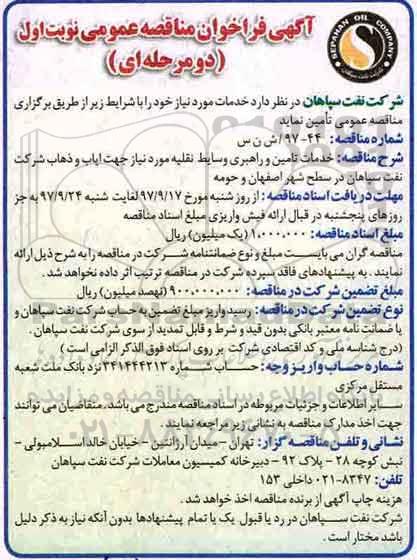 آگهی فراخوان مناقصه عمومی نوبت اول
(دو مرحله ای)
SEPAHAN OIL COMPANY
شرکت نفت سپاهان
شرکت نفت سپاهان در نظر دارد خدمات مورد نیاز خود را با شرایط زیر از طریق برگزاری
مناقصه عمومی تأمین نماید
شماره مناقصه: ۴۴-۹۷ / ش ن س
شرح مناقصه: خدمات تامین و راهبری وسایط نقلیه مورد نیاز جهت ایاب و ذهاب شرکت
نفت سپاهان در سطح شهر اصفهان و حومه
مهلت دریافت اسناد مناقصه: از روز شنبه مورخ ۹۷/۹/۱۷ لغایت شنبه ۹۷/۹/۲۴ به جز
روزهای پنجشنبه در قبال ارائه فیش واریزی مبلغ اسناد مناقصه
مبلغ اسناد مناقصه: ۱،۰۰۰،۰۰۰ (یک میلیون) ریال
مناقصه گران می بایست مبلغ و نوع ضمانتنامه شرکت در مناقصه را به شرح ذیل ارائه
نمایند. به پیشنهادهای فاقد سپرده شرکت در مناقصه ترتیب اثر داده نخواهد شد.
مبلغ تضمین شرکت در مناقصه: ۹۰۰،۰۰۰،۰۰۰ (نهصد میلیون) ریال
نوع تضمین شرکت در مناقصه: رسید واریز مبلغ تضمین به حساب شرکت نفت سپاهان و
یا ضمانت نامه معتبر بانکی بدون قید و شرط و قابل تمدید از سوی شرکت نفت سپاهان.
(درج شناسه ملی و کد اقتصادی شرکت بر روی اسناد فوق الذکر الزامی است)
شماره حساب واریز وجه: حساب شماره ۳۴۱۴۴۴۲۱۳ نزد بانک ملت شعبه
مستقل مرکزی
سایر اطلاعات و جزئیات مربوطه در اسناد مناقصه مندرج می باشد. متقاضیان می توانند
جهت اخذ مدارک مناقصه به نشانی زیر مراجعه نمایند.
نشانی و تلفن مناقصه گزار: تهران - میدان آرژانتین - خیابان خالد اسلامبولی -
نبش کوچه ۲۸ - پلاک ۹۲ - دبیرخانه کمیسیون معاملات شرکت نفت سپاهان
تلفن: ۸۳۴۷-۰۲۱ داخلی ۱۵۳
هزینه چاپ آگهی از برنده مناقصه اخذ خواهد شد.
شرکت نفت سپاهان در رد یا قبول یک یا تمام پیشنهادها بدون آنکه نیاز به ذکر دلیل
باشد مختار است.